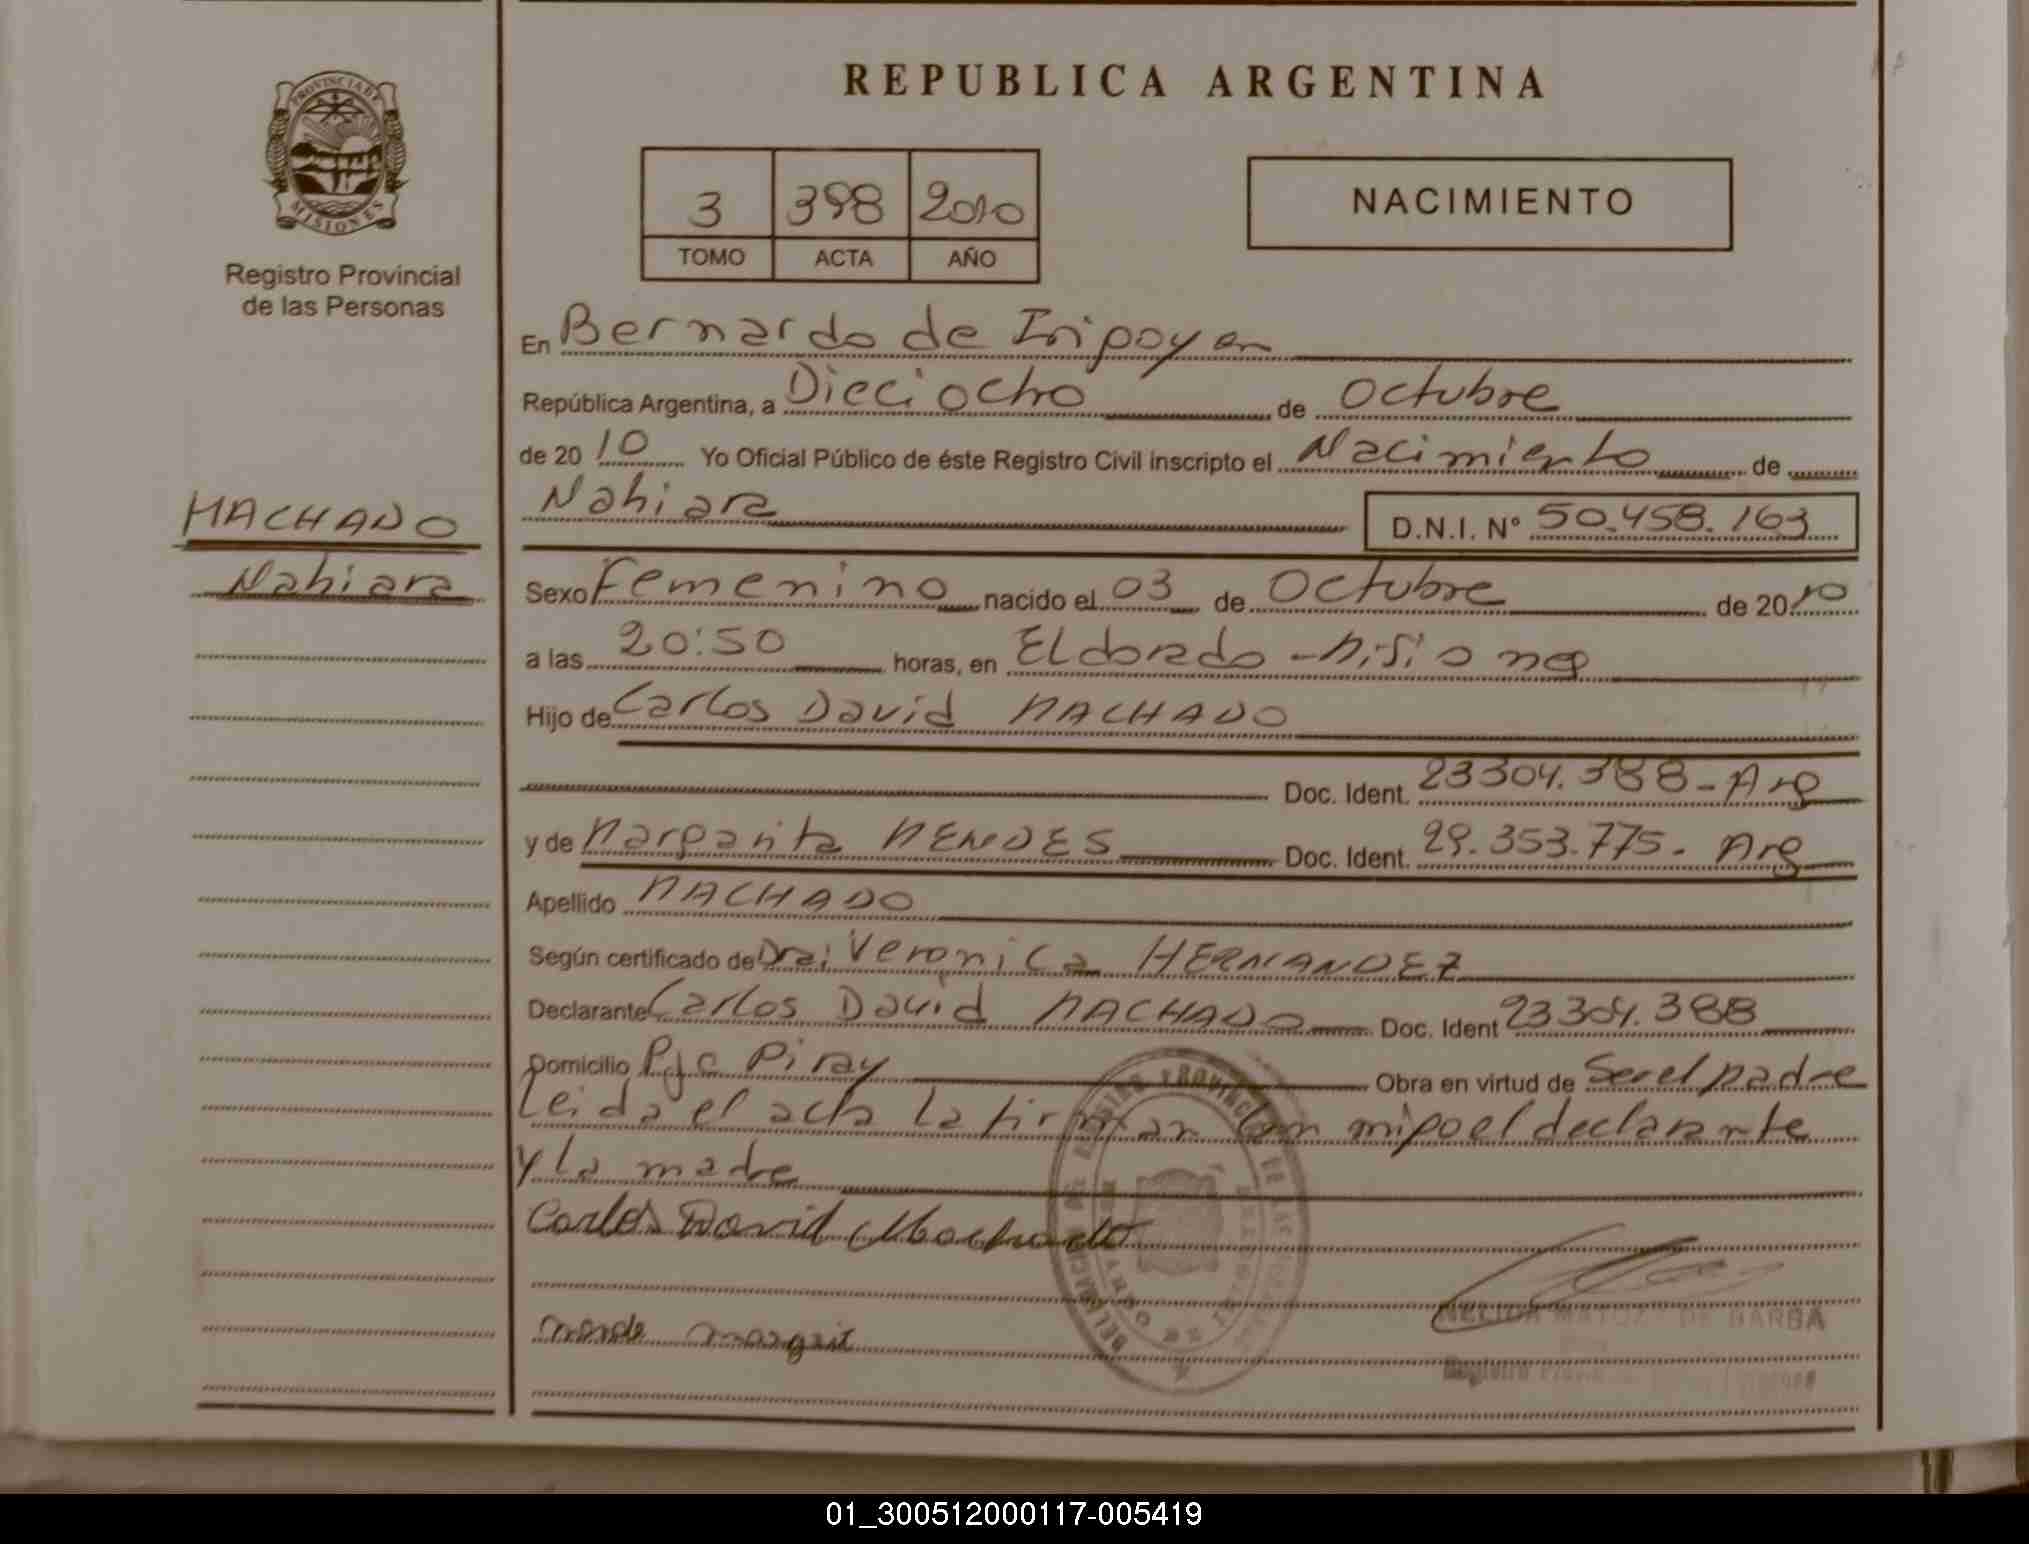 REPUBLICA ARGENTINA
PROVINCIA DE
MISIONES
Registro Provincial
de las Personas
3 398 2010
TOMO ACTA AÑO
NACIMIENTO
En Bernardo de Iripoyen
República Argentina, a Dieciocho de Octubre
de 20 10 Yo Oficial Público de éste Registro Civil inscripto el Nacimiento de
Nahiara D.N.I. Nº 50.458.163
MACHADO
Nahiara
Sexo Femenino nacido el 03 de Octubre de 20 10
a las 20:50 horas, en Eldorado - Misiones
Hijo de Carlos David MACHADO
Doc. Ident. 23304.388 - Arg
y de Margarita MENDES Doc. Ident. 29.353.775. Arg
Apellido MACHADO
Según certificado de Dra: Veronica HERNANDEZ
Declarante Carlos David MACHADO Doc. Ident 23304.388
Domicilio Pje Piray Obra en virtud de Ser el padre
Leida el acta la firman con migo el declarante
y la madre
Carlos David Machado
NELIDA MATOZ DE BARBA
01_300512000117-005419